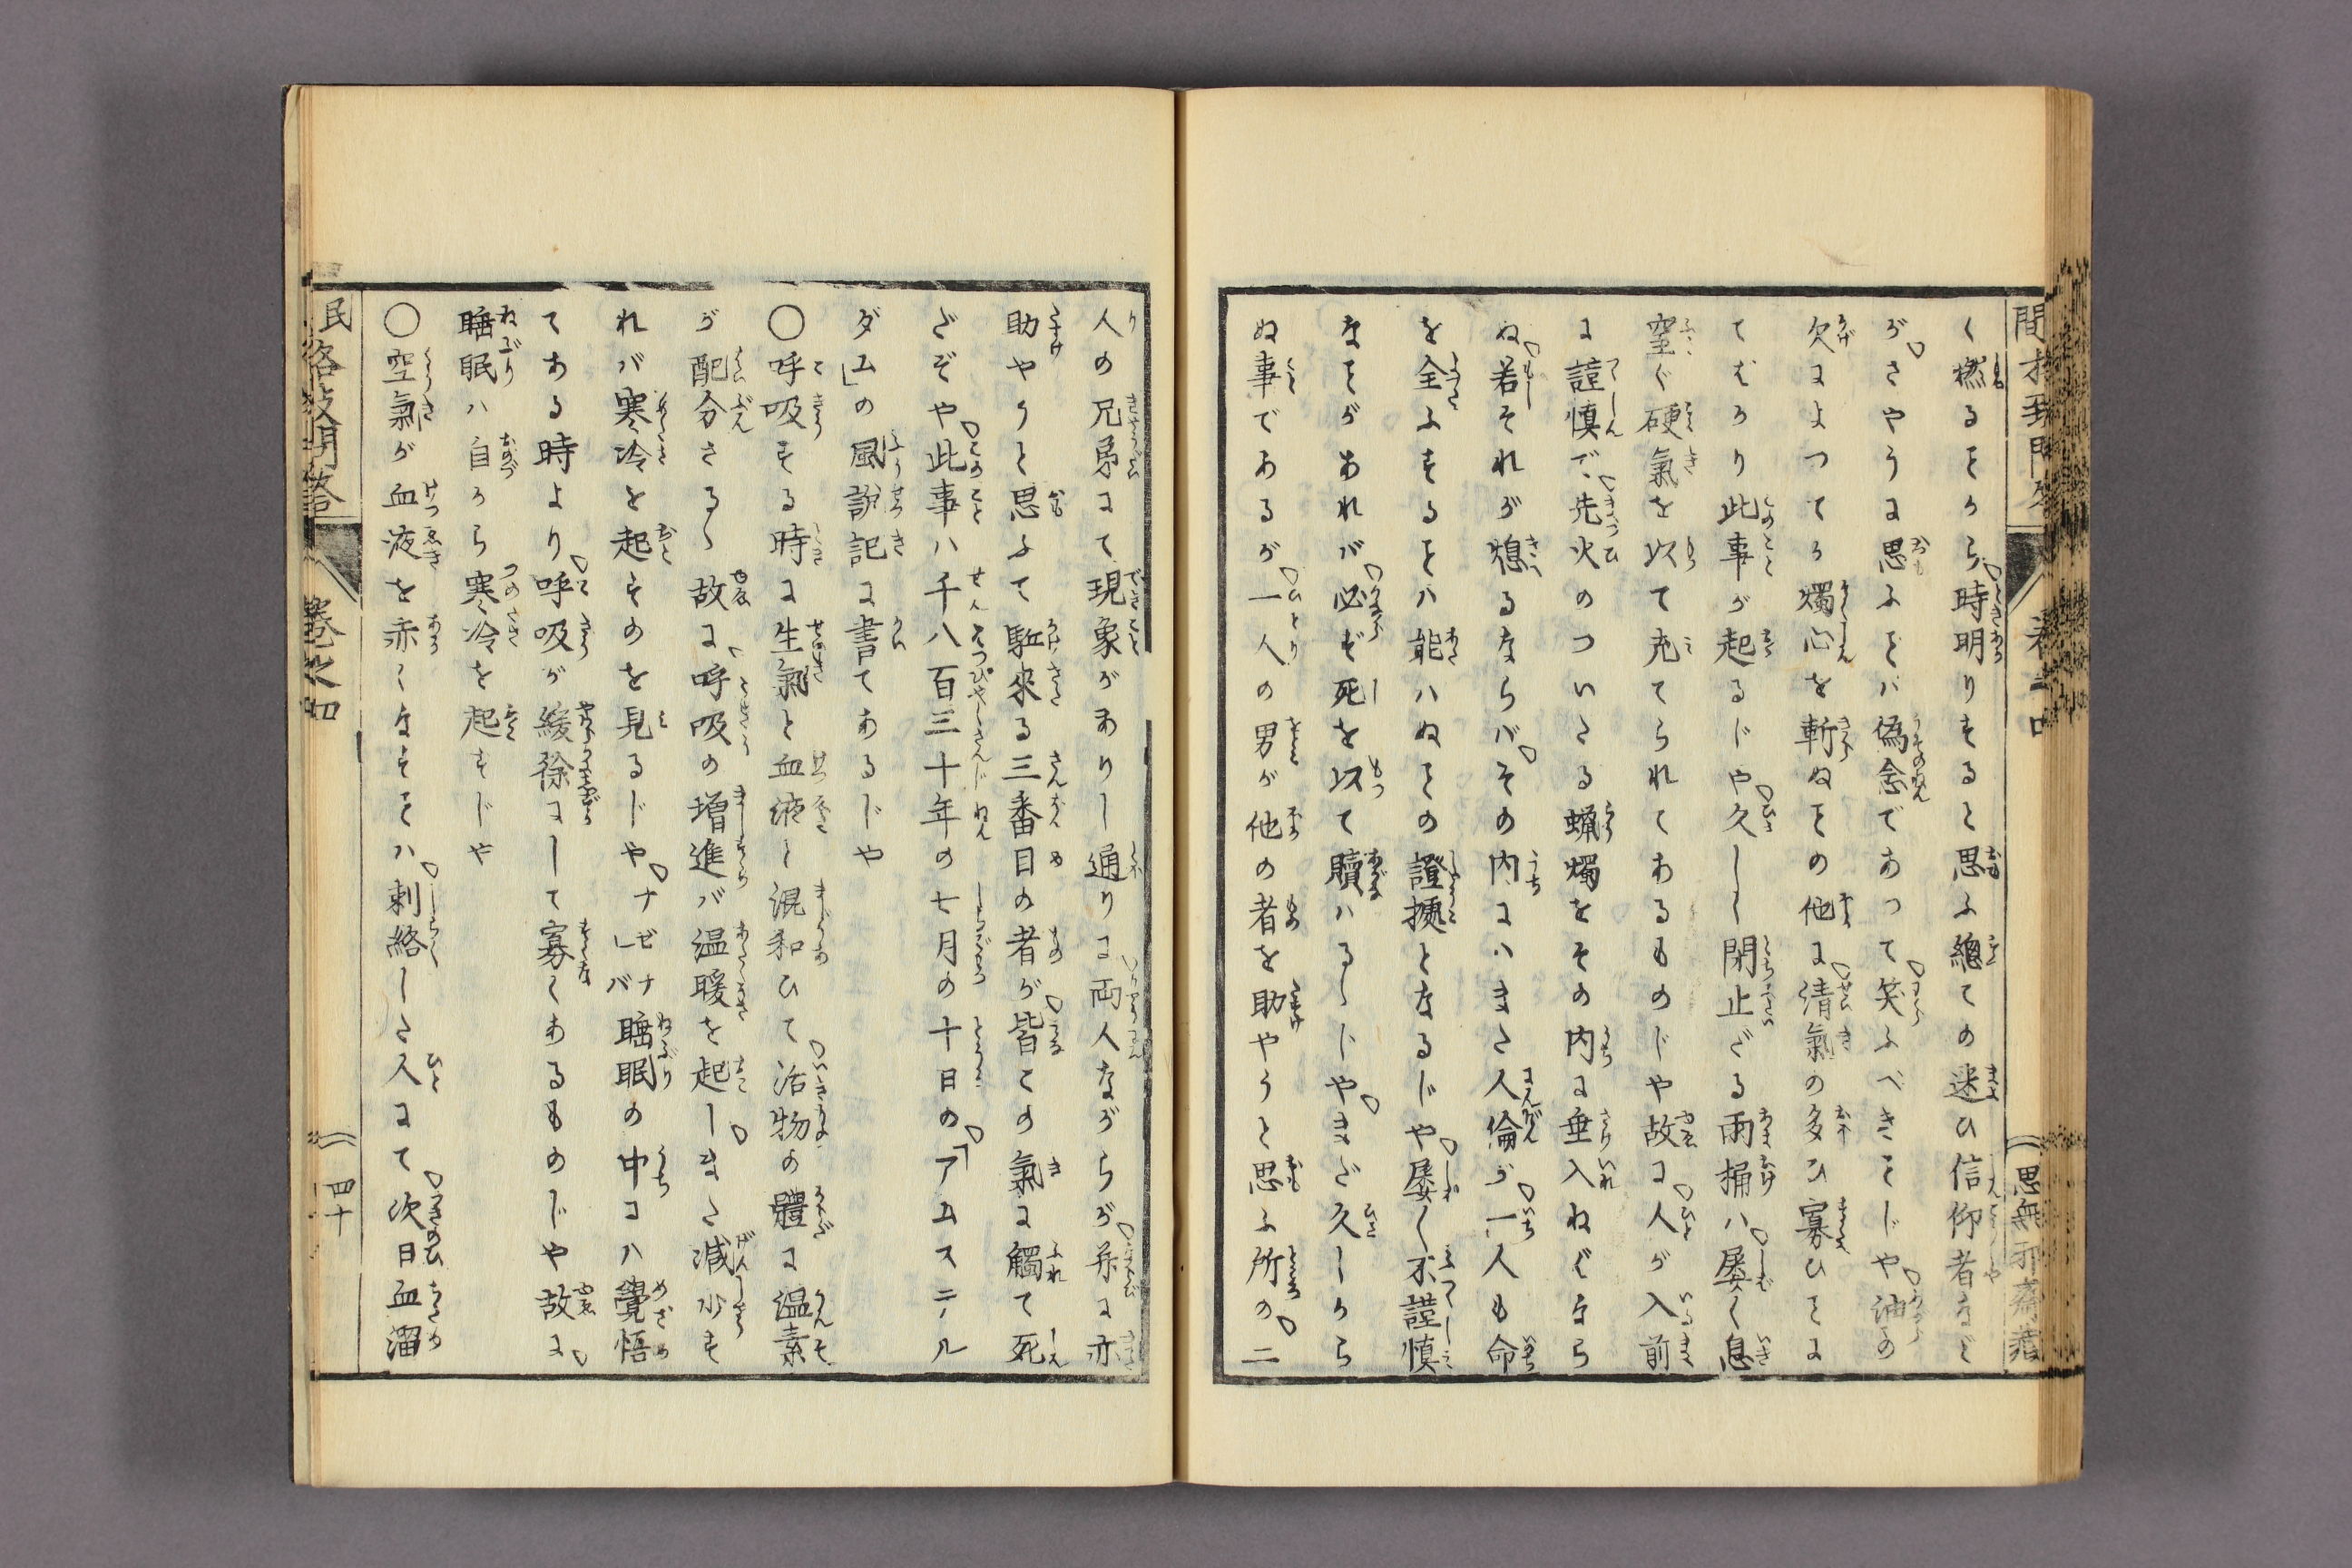 く燃るをから時明りすると思ふ總ての迷ひ信仰者など
がさやうに思ふをバ偽念であつて笑ふべきをじや油の
欠によつてか燭心を斬ぬをの他に清氣の多ひ寡ひをに
てむかり此事が起るじや久しく閉止ざる雨桶ハ屡く息
窒ぐ硬氣を以て充てられてあるものじや故に人が入前
に謹慎で先火のついたる蝋燭をその内に垂入ねばなら
ぬ若それが熄るならバその内にハまた人倫が一人も命
を全ふするをハ能ハぬをの證據となるじや屡く不謹慎
なをがあれバ必ず死を以て贖ハるゝじやまだ久しから
ぬ事であるが一人の男が他の者を助やうと思ふ所の二
人の兄弟にて現象がありし通りに両人ながらが并に亦
助やうと思ふて駈来る三番目の者が皆この氣に觸て死
だぞや此事ハ千八百三十年の七月の十日の「アムステル
ダム」の風説記に書てあるじや
〇呼吸する時に生氣と血液と混和ひて活物の體に温素
が配分さるゝ故に呼吸の増進バ温暖を起しまた減少す
れバ寒冷を起すのを見るじやナゼナレバ睡眠の中にハ覺悟
てある時より呼吸が緩徐にして寡くあるものじや故に
睡眠ハ自から寒冷を起すじや
〇空氣が血液を赤くなすをハ刺絡した人にて次日血溜
民 巻之四 四十
思無邪齋蔵